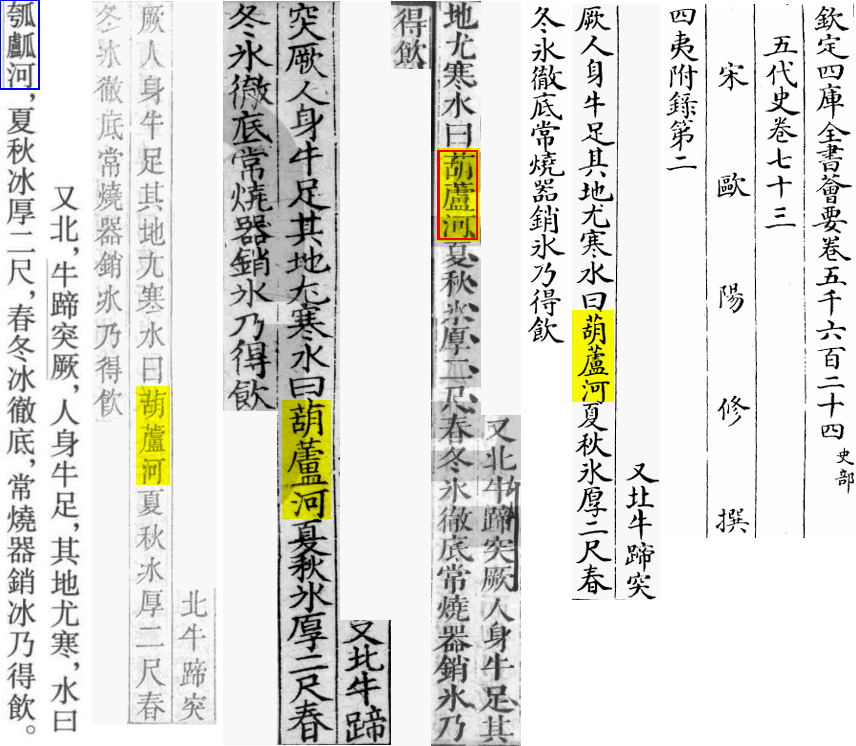 欽定四庫全書薈要卷五千六百二十四 史部
五代史卷七十三
宋 歐 陽 修 撰
四夷附錄第二
又北牛蹄突
厥人身牛足其地尤寒水曰葫蘆河夏秋氷厚二尺春
冬氷徹底常燒器銷氷乃得飲
又北牛蹄突厥人身牛足其
地尤寒水曰葫蘆河夏秋氷厚二尺春冬氷徹底常燒器銷氷乃
得飲
又北牛蹄
突厥人身牛足其地尤寒水曰葫蘆河夏秋氷厚二尺春
冬氷徹底常燒器銷氷乃得飲
北牛蹄突
厥人身牛足其地尤寒水曰葫蘆河夏秋氷厚二尺春
冬氷徹底常燒器銷氷乃得飲
又北,牛蹄突厥,人身牛足,其地尤寒,水曰
瓠𤬛河,夏秋冰厚二尺,春冬冰徹底,常燒器銷冰乃得飲。